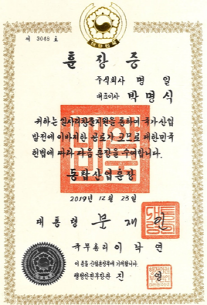 제 3085 호
훈장증
주식회사 명일
대표이사 박명식
귀하는
국가산업
발전에 이바지한 공로가 크므로 대한민국
헌법에 따라 다음 훈장을 수여합니다.
동탑산업훈장
2019년 12월 25일
대통령 문재인
국무총리 이낙연
행정안전부장관 진영